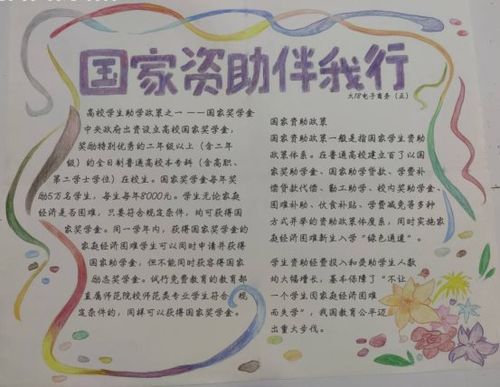 国家资助伴我行
大18电子商务（五）
高校学生助学政策之一——国家奖学金
中央政府出资设立高校国家奖学金，
奖励特别优秀的二年级以上（含二年
级）的全日制普通高校本专科（含高职、
第二学士学位）在校生。国家奖学金每年奖
励5万名学生，每生每年8000元。学生无论家庭
经济是否困难，只要符合规定条件，均可获得国
家奖学金。同一学年内，获得国家奖学金的
家庭经济困难学生可以同时申请并获得
国家助学金，但不能同时获得国家
励志奖学金。试行免费教育的教育部
直属师范院校师范类专业学生符合 规
定条件的，同样可以获得国家奖学金。
国家资助政策
国家资助政策一般是指国家学生资助
政策体系。在普通高校建立百了以国
家奖助学金、国家助学贷款、学费补
偿贷款代偿、勤工助学、校内奖助学金、
困难补助、伙食补贴、学费减免等多种
方式并举的资助政策体度系，同时实施家
庭经济困难新生入学“绿色通道”。
学生资助经费投入和受助学生人数
均大幅增长，基本保障了“不让
一个学生因家庭经济困难
而失学”，我国教育公平迈
出重大步伐。